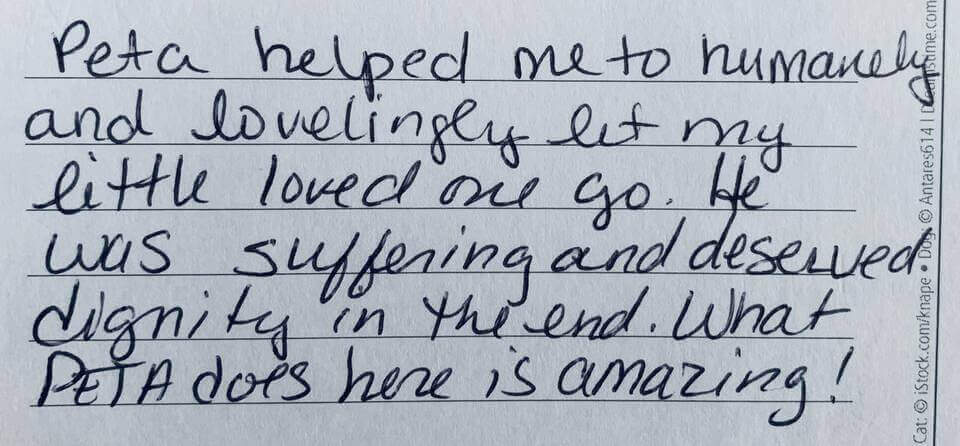 Peta helped me to humanely
and lovelingly let my
little loved one go. He
was suffering and deserved
dignity in the end. What
PETA does here is amazing!
Cat: © iStock.com/knape • Dog: © Antares614 |